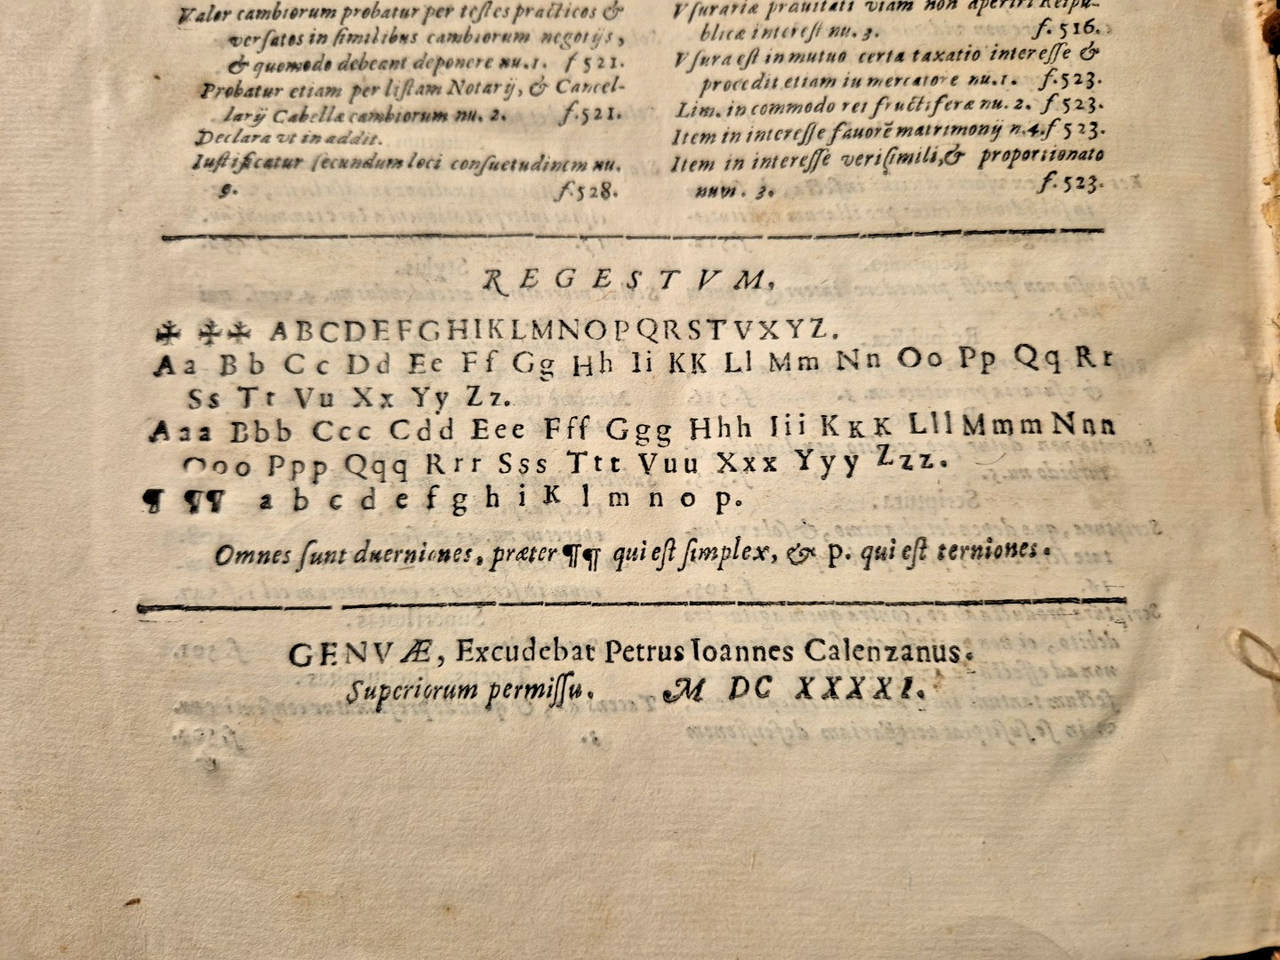 Valor cambiorum probatur per testes practicos &
versatos in similibus cambiorum negotijs,
& quomodo debeant deponere nu. 1. f 521.
Probatur etiam per listam Notarij, & Cancel-
larij Cabellæ cambiorum nu. 2. f. 521.
Declara vt in addit.
Iustificatur secundum loci consuetudinem nu.
9. f. 528.
Vsurariæ prauitati viam non aperiri Reipu-
blicæ interest nu. 3. f. 516.
Vsura est in mutuo certa taxatio interesse &
procedit etiam iu mercatore nu. 1. f. 523.
Lim. in commodo rei fructiferæ nu. 2. f 523.
Item in interesse fauorē matrimonij n. 4. f 523.
Item in interesse verisimili, & proportionato
num. 3. f. 523.
REGESTVM,
✠ ✠✠ ABCDEFGHIKLMNOPQRSTVXYZ.
Aa Bb Cc Dd Ee Ff Gg Hh Ii KK Ll Mm Nn Oo Pp Qq Rr
Ss Tt Vu Xx Yy Zz.
Aaa Bbb Ccc Cdd Eee Fff Ggg Hhh Iii KKK Lll Mmm Nnn
Ooo Ppp Qqq Rrr Sss Ttt Vuu Xxx Yyy Zzz.
¶ ¶¶ a b c d e f g h i K l m n o p.
Omnes sunt duerniones, præter ¶¶ qui est simplex, & p. qui est terniones.
GENVÆ, Excudebat Petrus Ioannes Calenzanus.
Superiorum permissu. M DC XXXXI.